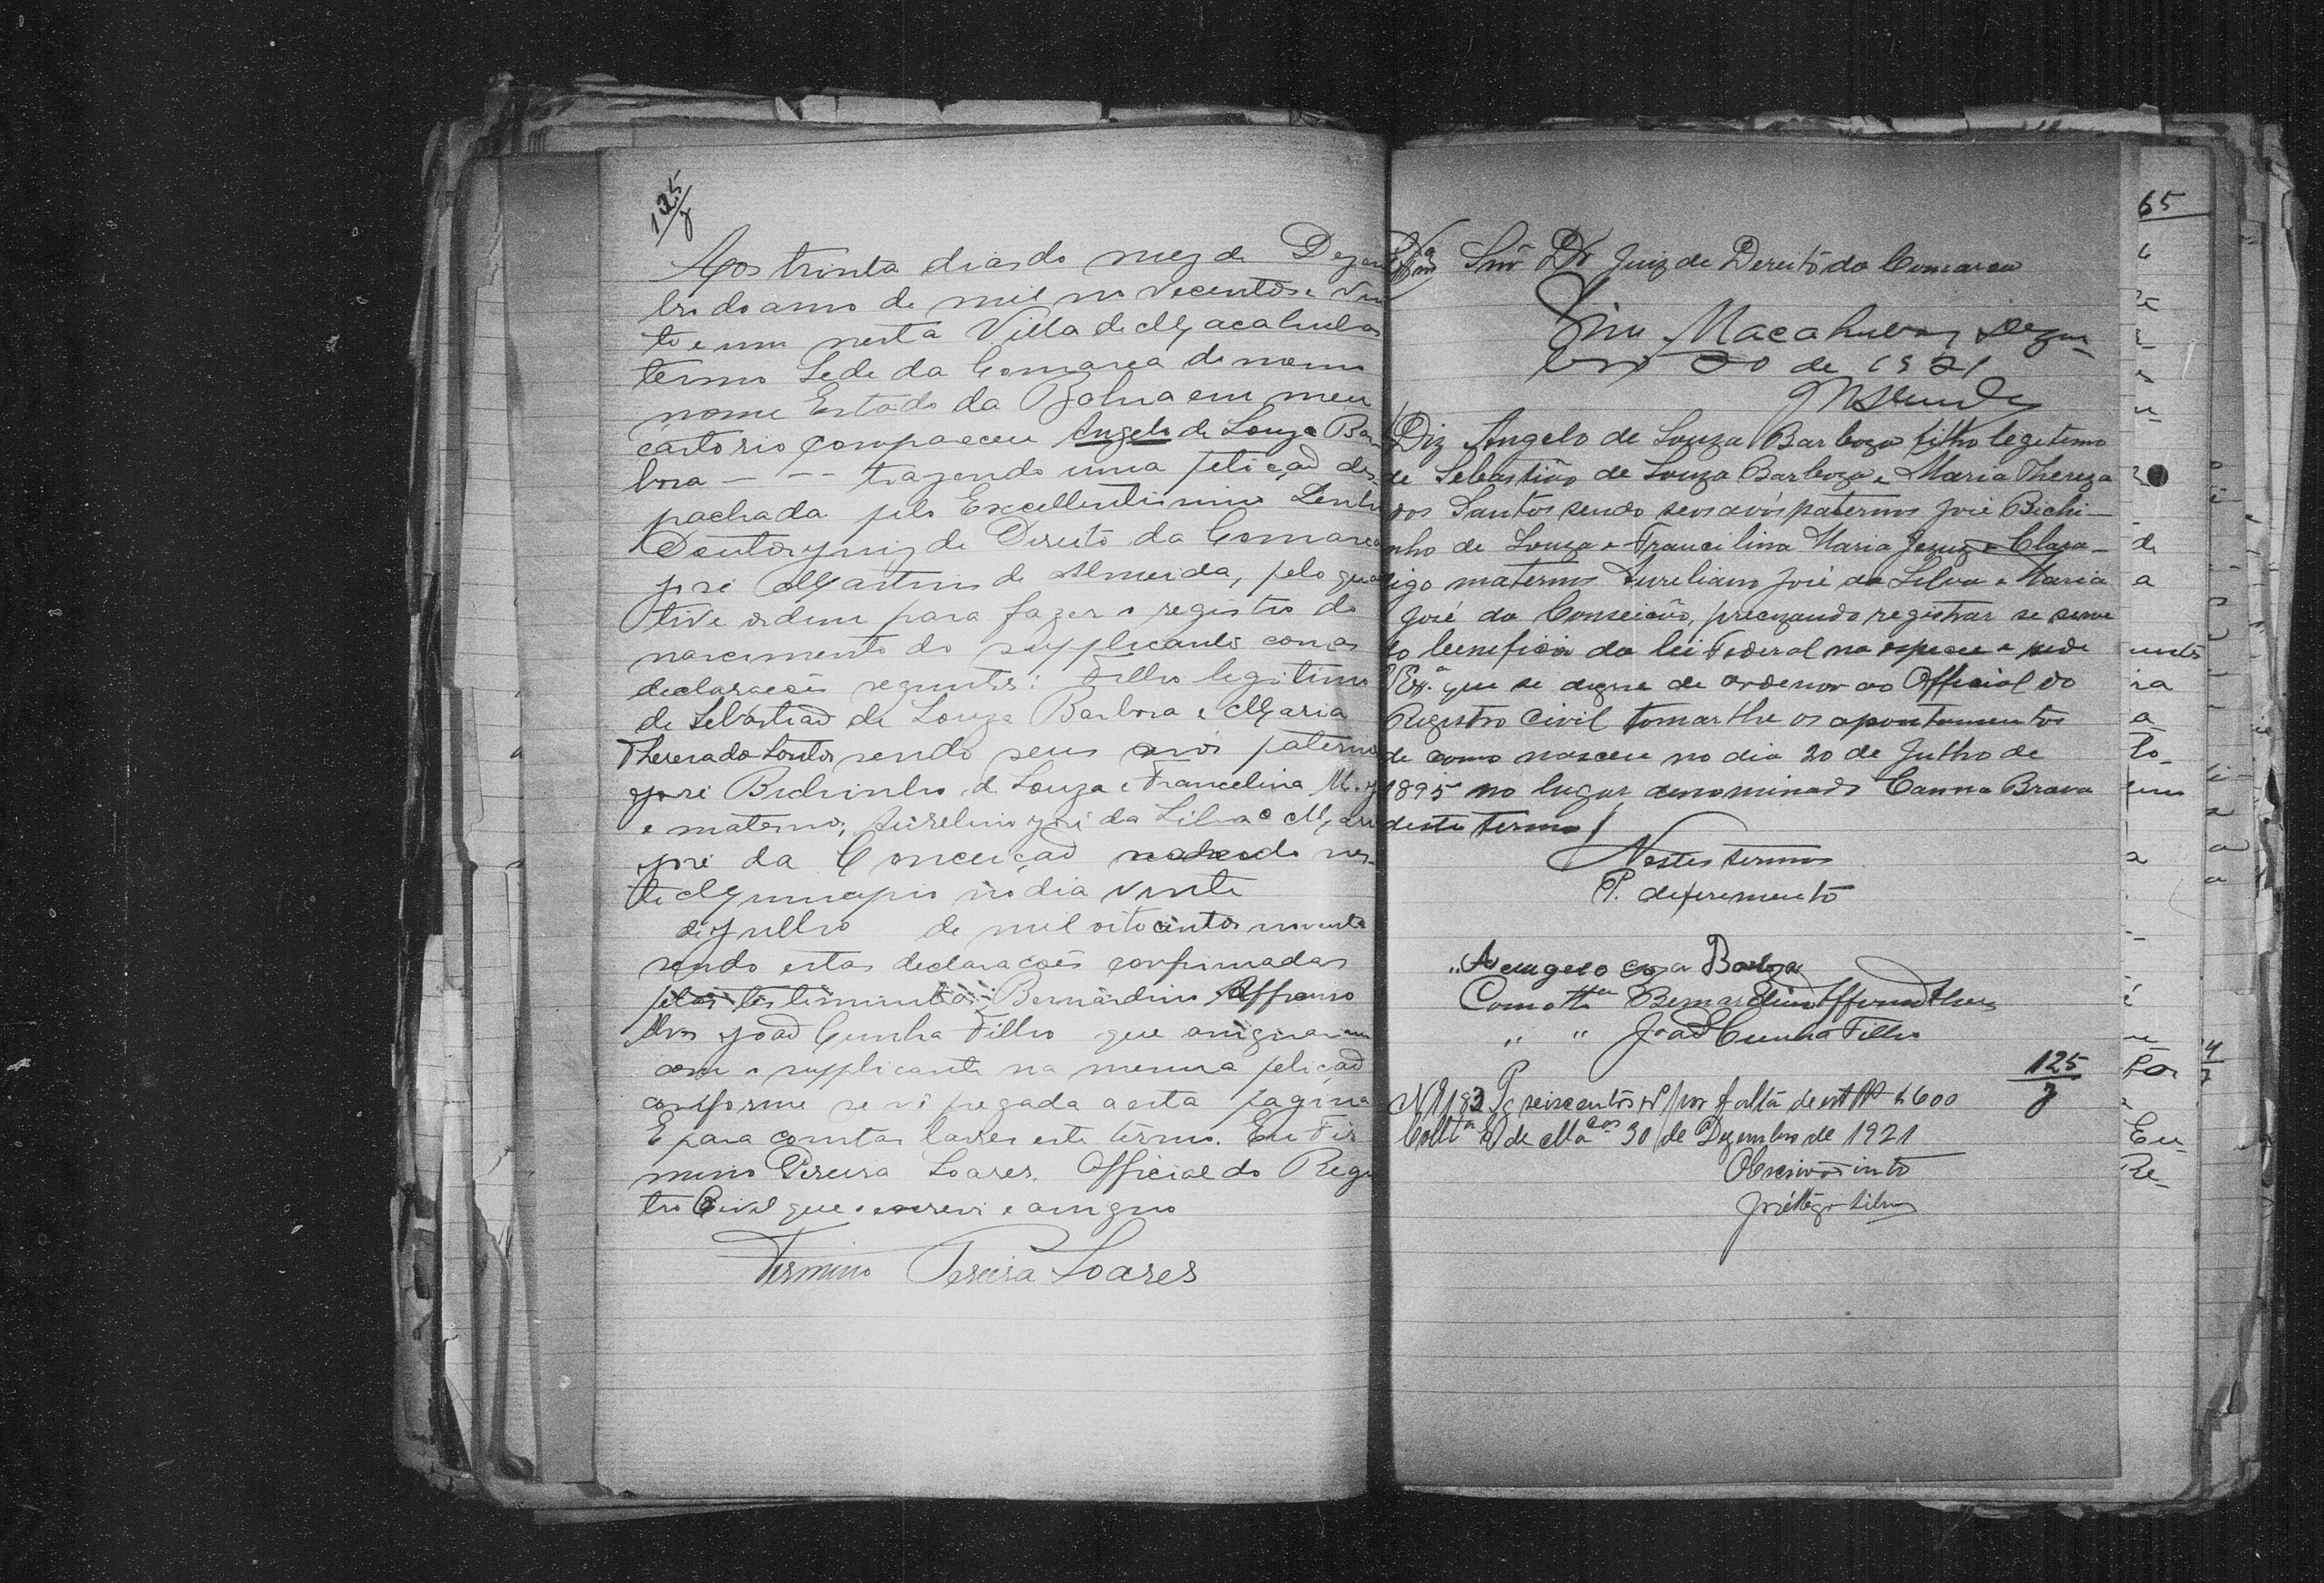 125
Aos trinta dias do mez de Dezem
bro do anno de mil novecentos e vin
te e um nesta Villa de Macahubas
termo Sede da Comarca do mesmo
nome Estado da Bahia em meu
cartorio compareceu Angelo de Souza Bar
bosa - - trazendo uma petição des-
pachada pelo Excellentissimo Senhor
Doutor Juiz de Direito da Comarca
José Martins de Almeida, pelo qual
tive ordem para fazer o registro do
nascimento do supplicante com as
declarações seguintes: Filho legitimo
de Sebastião de Souza Barbosa e Maria
Thereza do Santos sendo seus avós paternos
José Bichinho de Souza e Francelina M. J
e maternos, Aurelino José da Silva e Mari
José da Conceição nascido nes-
te Municipio no dia vinte
de Julho de mil oitocentos noventa
sendo estas declarações confirmadas
pelas testimunhas: Bernardino Affonso
Alves João Cunha Filho que assignaram
com o supplicante na mesma petição
conforme se vê pregada a esta pagina
E para constar lavrei este termo. Eu Fir
mino Pereira Soares. Official do Regis
tro Civil que o escrevi e assigno
Firmino Pereira Soares
Snr Dr Juiz de Direito da Comarca
Sim. Macahubas, Dezem-
bro 30 de 1921
Diz Angelo de Souza Barboza filho legitimo
de Sebastião de Souza Barboza e Maria Thereza
dos Santos sendo seos avós paternos José Bichi-
nho de Souza e Francilina Maria Jezus e Clara-
maternos Aureliano José da Silva e Maria
José da Conseicão, precizando registrar se
do beneficio da lei Federal na especie e pede
Exª que se digne de ordenar ao Official do
Registro Civil tomar the os apontamentos
de como nasceu no dia 20 de Julho de
1895 no lugar denominado Canna Brava
deste termo/
Nestes termos
P. deferimento
Barboza
Como ttª Bernardino Affonso Alves
" " João Cunha Filho
125
Nº 183 Pg seiscentos rs por falta de est. $600
Collª E de Macªs 30 de Dezembro de 1921
O Escrivão int̃o
65
de
a
ra
a
to-
um
Eu
Re-